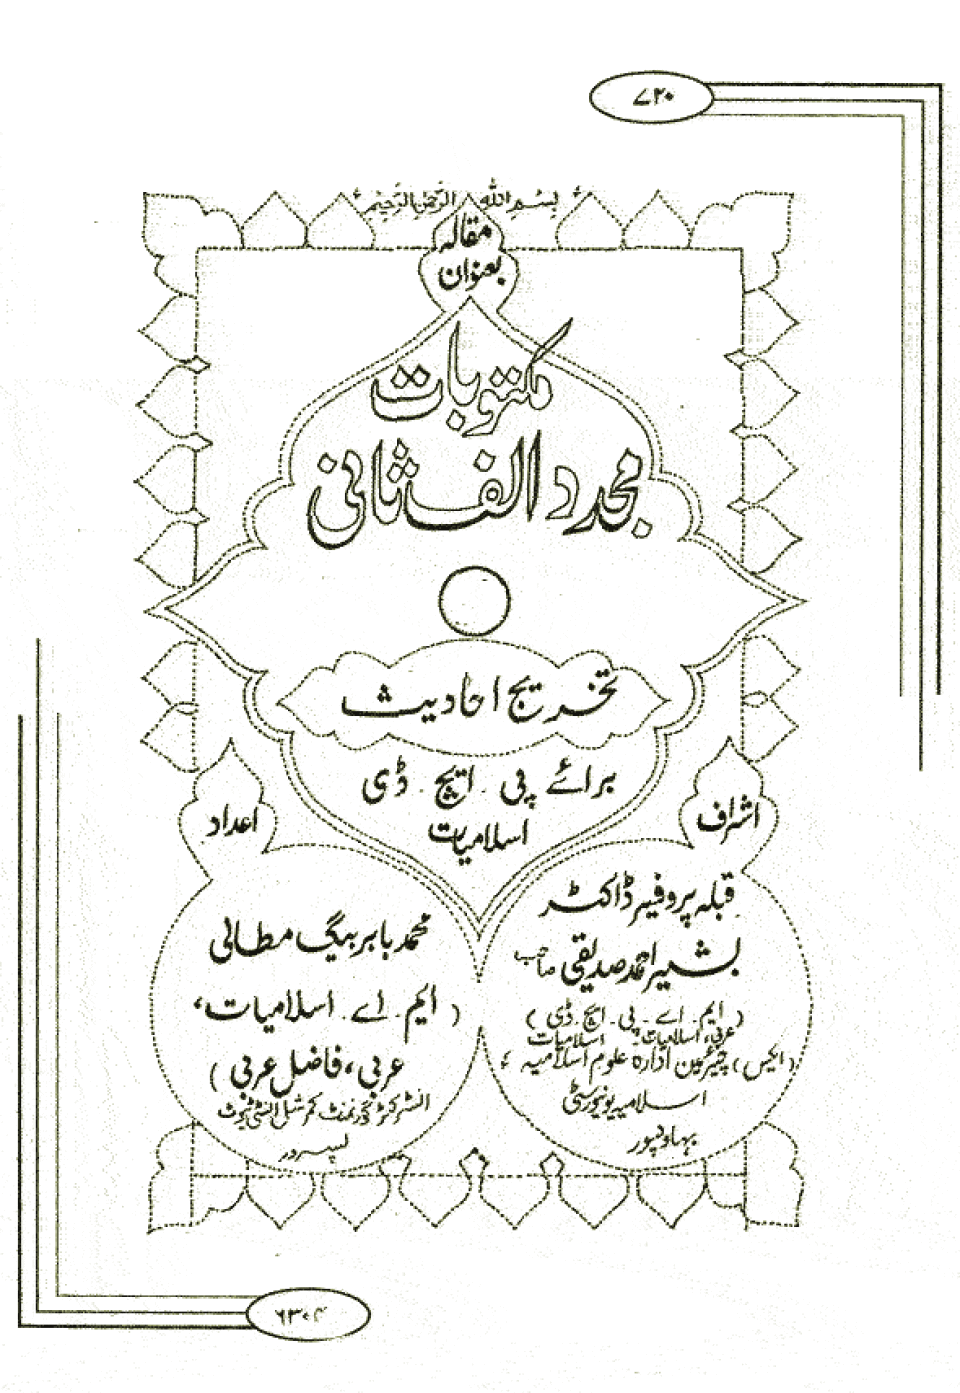 ۷۲۰
بِسْمِ اللهِ الرَّحْمٰنِ الرَّحِيْمِ
مقالہ
بعنوان
مکتوبات
مجدد الف ثانی
تخریج احادیث
برائے پی۔ ایچ۔ ڈی
اسلامیات
اشراف
قبلہ پروفیسر ڈاکٹر
بشیر احمد صدیقی صاحب
(ایم۔ اے۔ پی۔ ایچ۔ ڈی)
عربی، اسلامیات۔ اسلامیات
(ایکس) چیئرمین ادارہ علوم اسلامیہ
اسلامیہ یونیورسٹی
بہاولپور
اعداد
محمد بابر بیگ مطالی
(ایم۔ اے۔ اسلامیات،
عربی، فاضل عربی)
انسٹرکٹر گورنمنٹ کمرشل انسٹی ٹیوٹ